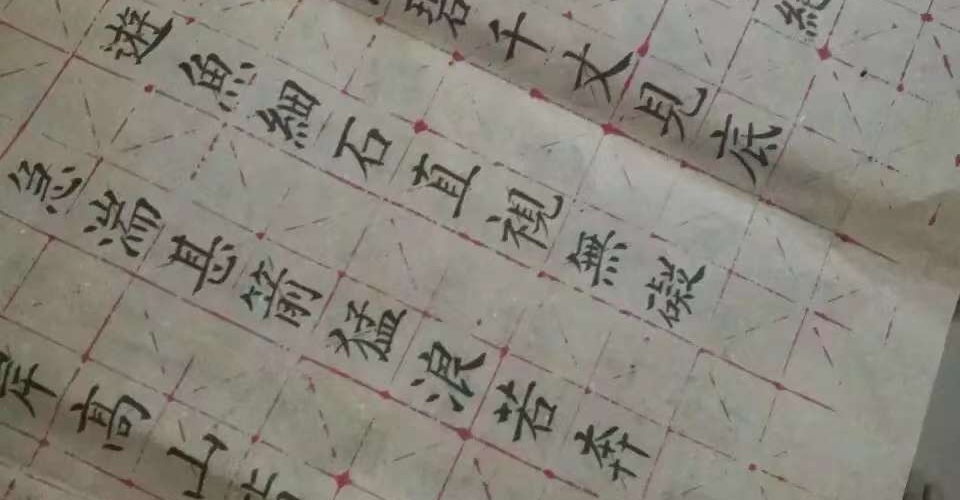 碧千丈見底
遊魚細石直視無礙
急湍甚箭猛浪若奔
岸高山